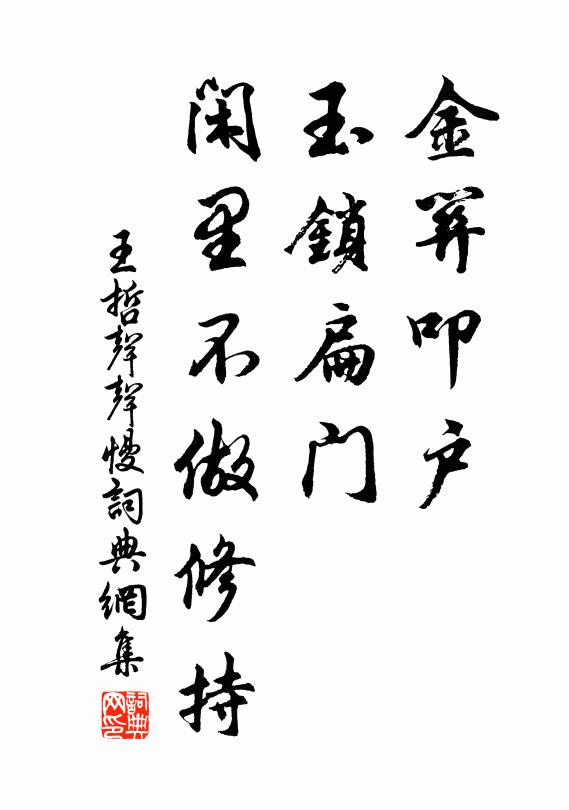 金笄叩户
玉鎖扁门
閑里不做修持
王哲聲聲慢詞典網集
詞典网印